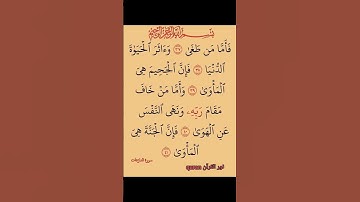 بسم الله الرحمن الرحيم
فَأَمَّا مَن طَغَىٰ ٣٧ وَءَاثَرَ ٱلْحَيَوٰةَ
ٱلدُّنْيَا ٣٨ فَإِنَّ ٱلْجَحِيمَ هِىَ
ٱلْمَأْوَىٰ ٣٩ وَأَمَّا مَنْ خَافَ
مَقَامَ رَبِّهِۦ وَنَهَى ٱلنَّفْسَ
عَنِ ٱلْهَوَىٰ ٤٠ فَإِنَّ ٱلْجَنَّةَ هِىَ
ٱلْمَأْوَىٰ ٤١
سورة النازعات
quran نور القرآن